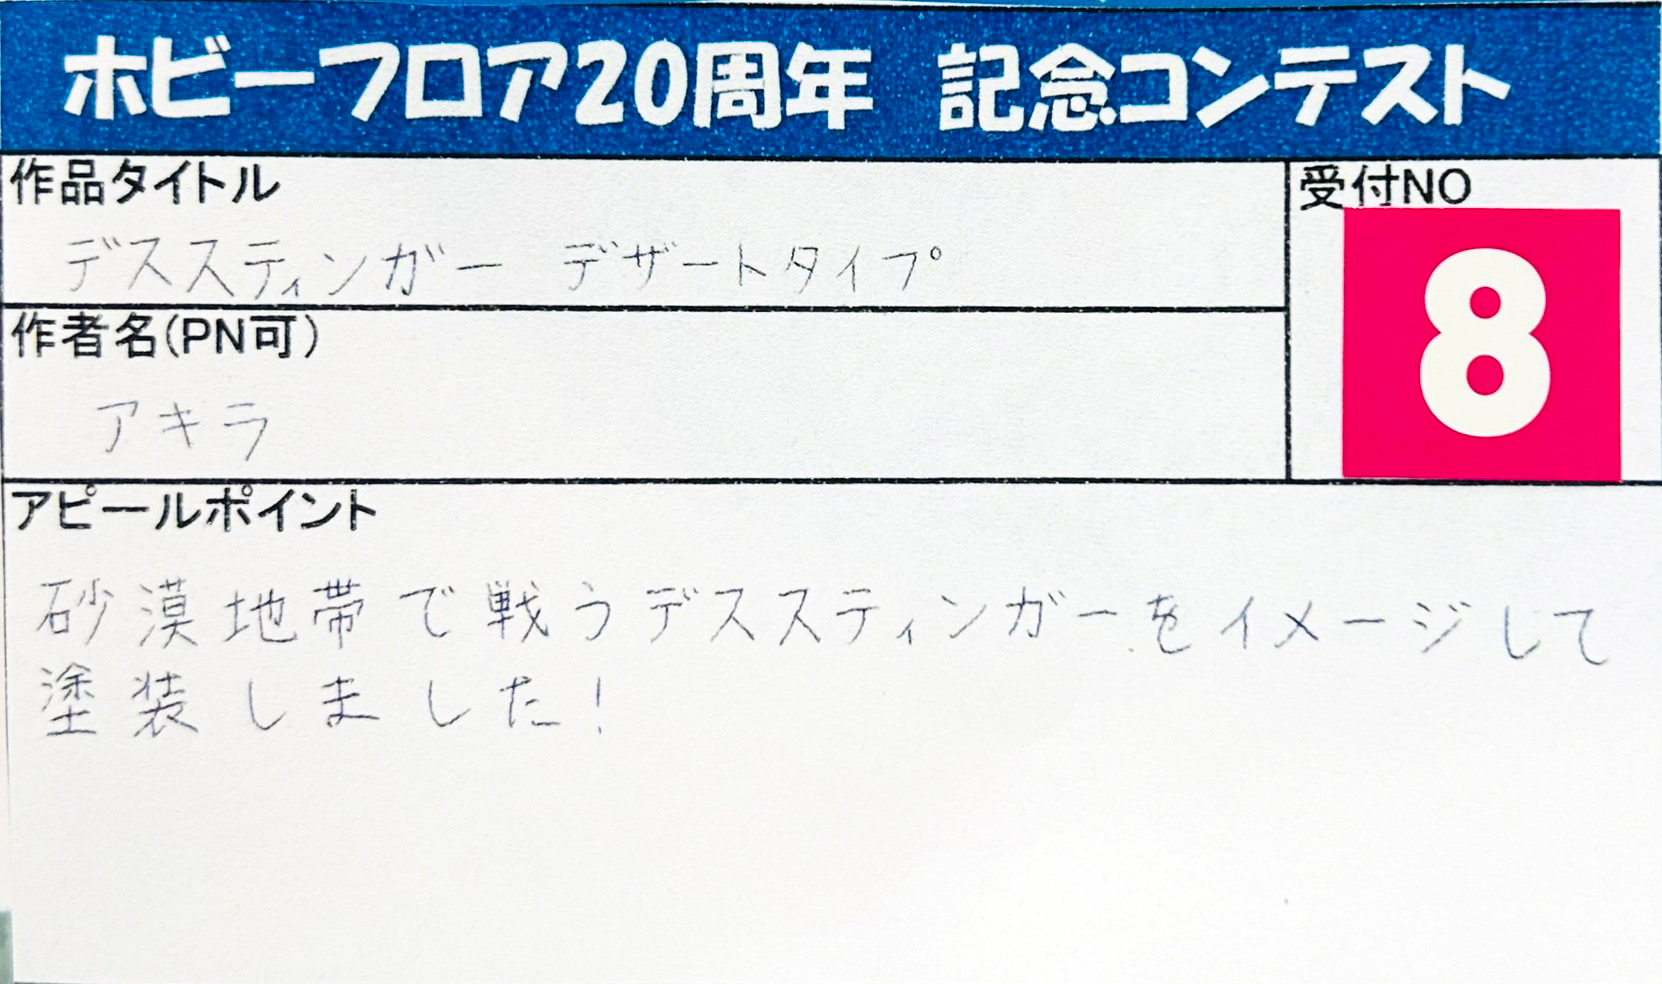 ホビーフロア20周年 記念コンテスト
作品タイトル
デススティンガー デザートタイプ
受付NO
8
作者名(PN可)
アキラ
アピールポイント
砂漠地帯で戦うデススティンガーをイメージして
塗装しました!